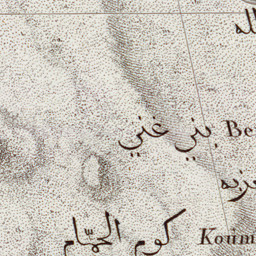 لله
بني غني Be
عزبه
كوم الحمّام Koum